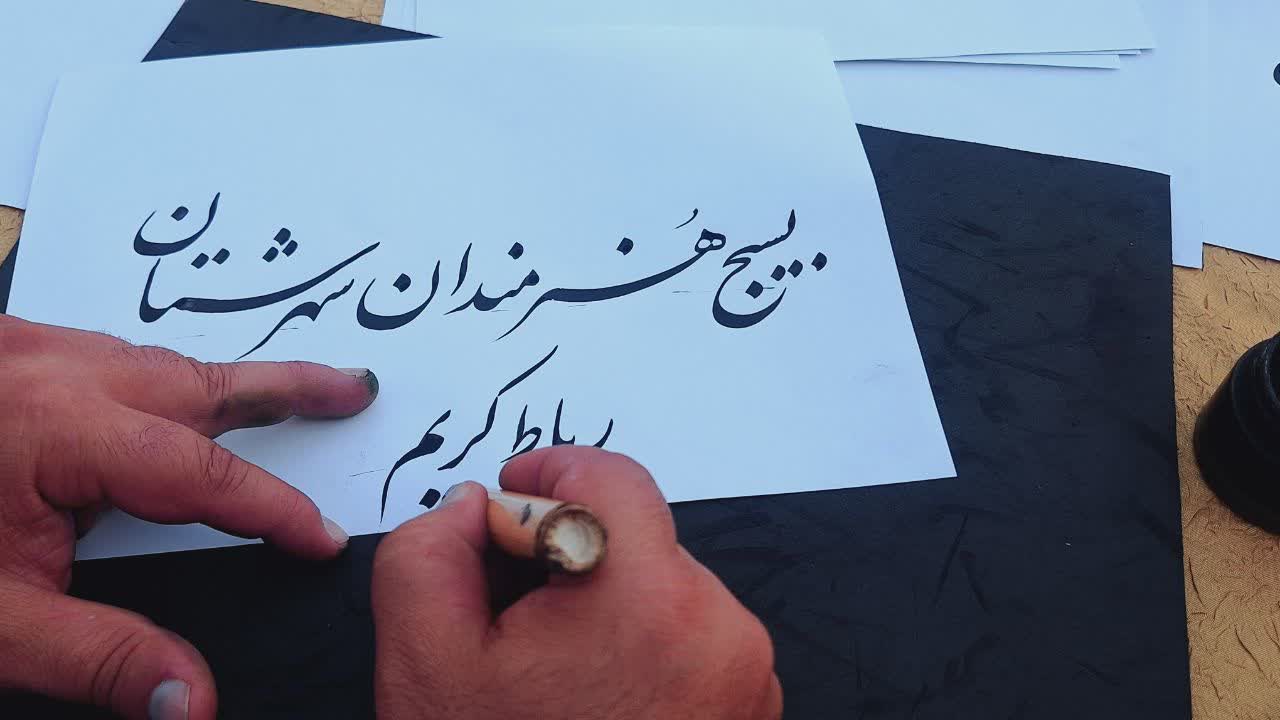 بسیج هُنرمندان شهرستان
رباط کریم